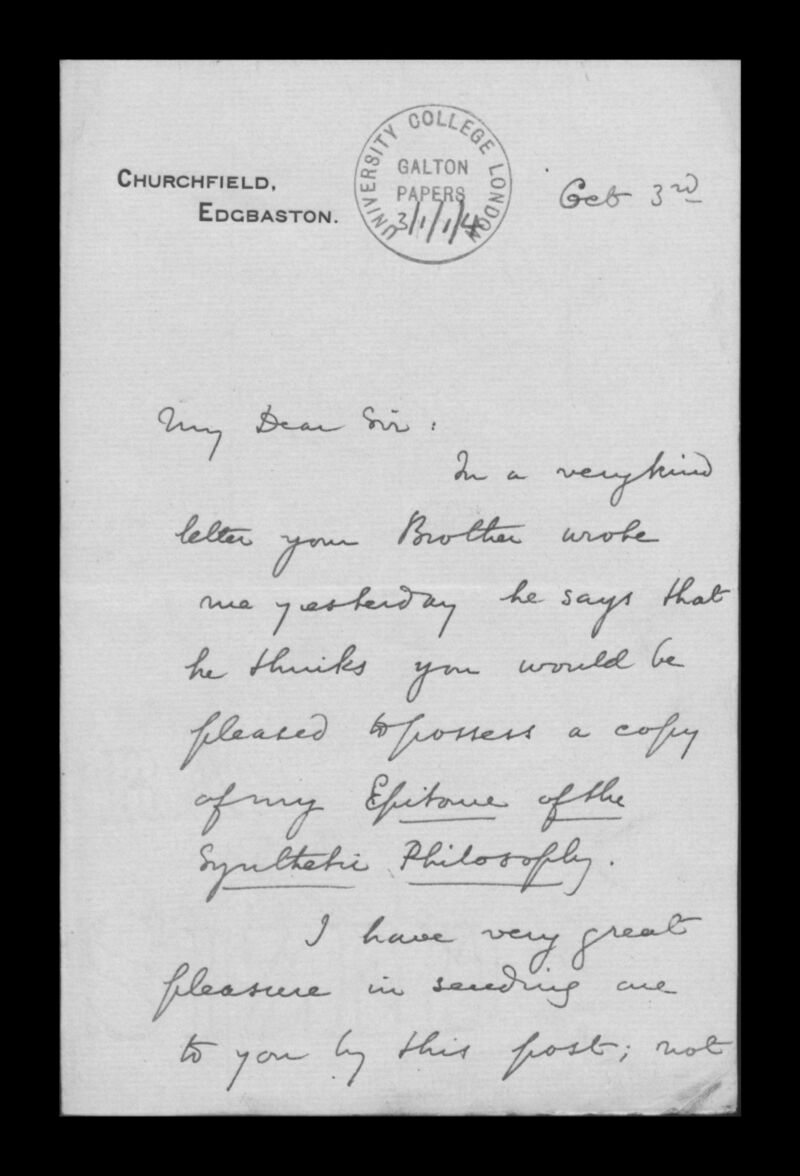 CHURCHFIELD,
EDGBASTON.
UNIVERSITY COLLEGE LONDON
GALTON
PAPERS
3/1/1/4
Oct 3rd
My Dear Sir:
In a very kind
letter your Brother wrote
me yesterday he says that
he thinks you would be
pleased to possess a copy
of my Epitome of the
Synthetic Philosophy.
I have very great
pleasure in sending one
to you by this post; not